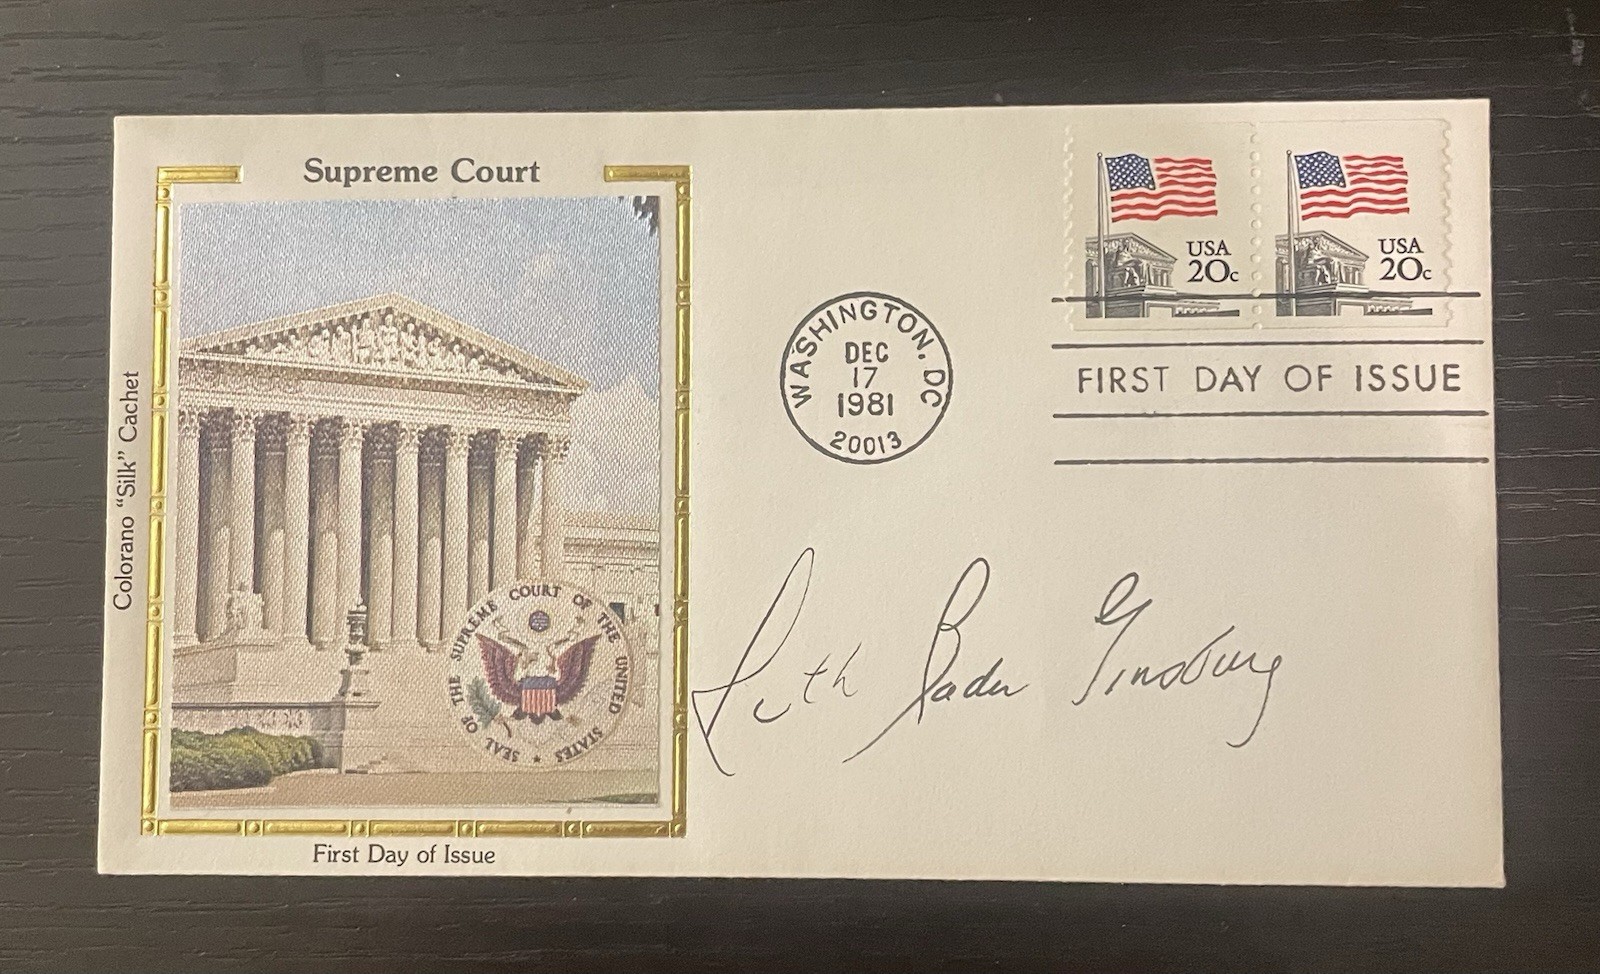 Supreme Court
Colorano "Silk" Cachet
SEAL OF THE SUPREME COURT OF THE UNITED STATES ★
First Day of Issue
WASHINGTON, DC
DEC
17
1981
20013
USA
20c
USA
20c
FIRST DAY OF ISSUE
Ruth Bader Ginsburg